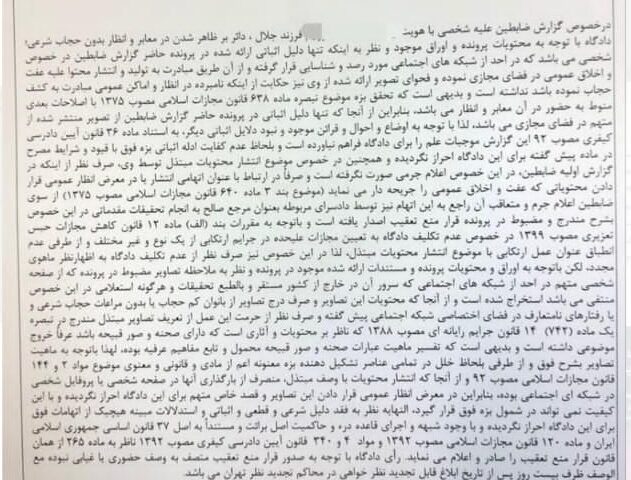 درخصوص گزارش ضابطین علیه شخصی با هویت فرزند جلال ، دائر بر ظاهر شدن در معابر و انظار بدون حجاب شرعی؛
دادگاه با توجه به محتویات پرونده و اوراق موجود و نظر به اینکه تنها دلیل اثباتی ارائه شده در پرونده حاضر گزارش ضابطین در خصوص
شخصی می باشد که در احد از شبکه های اجتماعی مورد رصد و شناسایی قرار گرفته و از آن طریق مبادرت به تولید و انتشار محتوا علیه عفت
و اخلاق عمومی در فضای مجازی نموده و فحوای تصویر ارائه شده از وی نیز حکایت از اینکه نامبرده در انظار و اماکن عمومی مبادرت به کشف
حجاب نموده باشد نداشته است و بدیهی است که تحقق بزه موضوع تبصره ماده ۶۳۸ قانون مجازات اسلامی مصوب ۱۳۷۵ با اصلاحات بعدی
منوط به حضور در آن معابر و انظار می باشد، بنابراین از آنجا که تنها دلیل اثباتی در پرونده حاضر گزارش ضابطین از تصویر منتشر شده از
متهم در فضای مجازی می باشد، لذا با توجه به اوضاع و احوال و قرائن موجود و نبود دلایل اثباتی دیگر، به استناد ماده ۳۶ قانون آیین دادرسی
کیفری مصوب ۹۲ این گزارش موجبات علم را برای دادگاه فراهم نیاورده است و بلحاظ عدم کفایت ادله اثباتی بزه فوق با قیود و شرایط مصرح
در ماده پیش گفته برای این دادگاه احراز نگردیده و همچنین در خصوص موضوع انتشار محتویات مبتذل توسط وی، صرف نظر از اینکه در
گزارش اولیه ضابطین، در این خصوص اعلام جرمی صورت نگرفته است و صرفاً در ارتباط با عنوان اتهامی انتشار یا در معرض انظار عمومی قرار
دادن محتویاتی که عفت و اخلاق عمومی را جریحه دار می نماید (موضوع بند ۳ ماده ۶۴۰ قانون مجازات اسلامی مصوب ۱۳۷۵) از سوی
ضابطین اعلام جرم و متعاقب آن راجع به این اتهام نیز توسط دادسرای مربوطه بعنوان مرجع صالح به انجام تحقیقات مقدماتی در این خصوص
بشرح مندرج و مضبوط در پرونده قرار منع تعقیب اصدار یافته است و باتوجه به مقررات بند (الف) ماده ۱۲ قانون کاهش مجازات حبس
تعزیری مصوب ۱۳۹۹ در خصوص عدم تکلیف دادگاه به تعیین مجازات علیحده در جرایم ارتکابی از یک نوع و غیر مختلف و از طرفی عدم
انطباق عنوان عمل ارتکابی با موضوع انتشار محتویات مبتذل، لذا در این خصوص نیز صرف نظر از عدم تکلیف دادگاه به اظهارنظر ماهوی
مجدد، لکن باتوجه به اوراق و محتویات پرونده و مستندات ارائه شده موجود در پرونده و نظر به ملاحظه تصاویر مضبوط در پرونده که از صفحه
شخصی متهم در احد از شبکه های اجتماعی که سرور آن در خارج از کشور مستقر و بالطبع تحقیقات و هرگونه استعلامی در این خصوص
منتفی می باشد استخراج شده است و از آنجا که محتویات این تصاویر و صرف درج تصاویر از بانوان کم حجاب یا بدون مراعات حجاب شرعی و
یا رفتارهای نامتعارف در فضای اختصاصی شبکه اجتماعی پیش گفته و صرف نظر از حرمت این عمل از تعریف تصاویر مبتذل مندرج در تبصره
یک ماده (۷۴۲) ۱۴ قانون جرایم رایانه ای مصوب ۱۳۸۸ که ناظر بر محتویات و آثاری است که دارای صحنه و صور قبیحه باشد عرفاً خروج
موضوعی داشته است و بدیهی است که تفسیر ماهیت عبارات صحنه و صور قبیحه محمول و تابع مفاهیم عرفیه بوده، لهذا باتوجه به ماهیت
تصاویر بشرح فوق و از طرفی بلحاظ خلل در تمامی عناصر تشکیل دهنده بزه معنونه اعم از مادی و قانونی و معنوی موضوع مواد ۲ و ۱۴۴
قانون مجازات اسلامی مصوب ۹۲ و از آنجا که انتشار محتویات با وصف مبتذل، منصرف از بارگذاری آنها در صفحه شخصی یا پروفایل شخصی
در شبکه ای اجتماعی بوده، بنابراین در معرض انظار عمومی قرار دادن این تصاویر و قصد خاص متهم برای این دادگاه احراز نگردیده و با این
کیفیت نمی تواند در شمول بزه فوق قرار گیرد، النهایه نظر به فقد دلیل شرعی و قطعی و اثباتی و استدلالات مبینه هیچیک از اتهامات فوق
برای این دادگاه احراز نگردیده و با وجود شبهه و اجرای قاعده درء و حاکمیت اصل برائت و مستنداً به اصل ۳۷ قانون اساسی جمهوری اسلامی
ایران و ماده ۱۲۰ قانون مجازات اسلامی مصوب ۱۳۹۲ و مواد ۴ و ۳۴۰ قانون آیین دادرسی کیفری مصوب ۱۳۹۲ ناظر به ماده ۲۶۵ از همان
قانون قرار منع تعقیب را صادر و اعلام می نماید. رأی دادگاه با توجه به صدور قرار منع تعقیب متصف به وصف حضوری یا غیابی نبوده مع
الوصف ظرف بیست روز پس از تاریخ ابلاغ قابل تجدید نظر خواهی در محاکم تجدید نظر تهران می باشد.